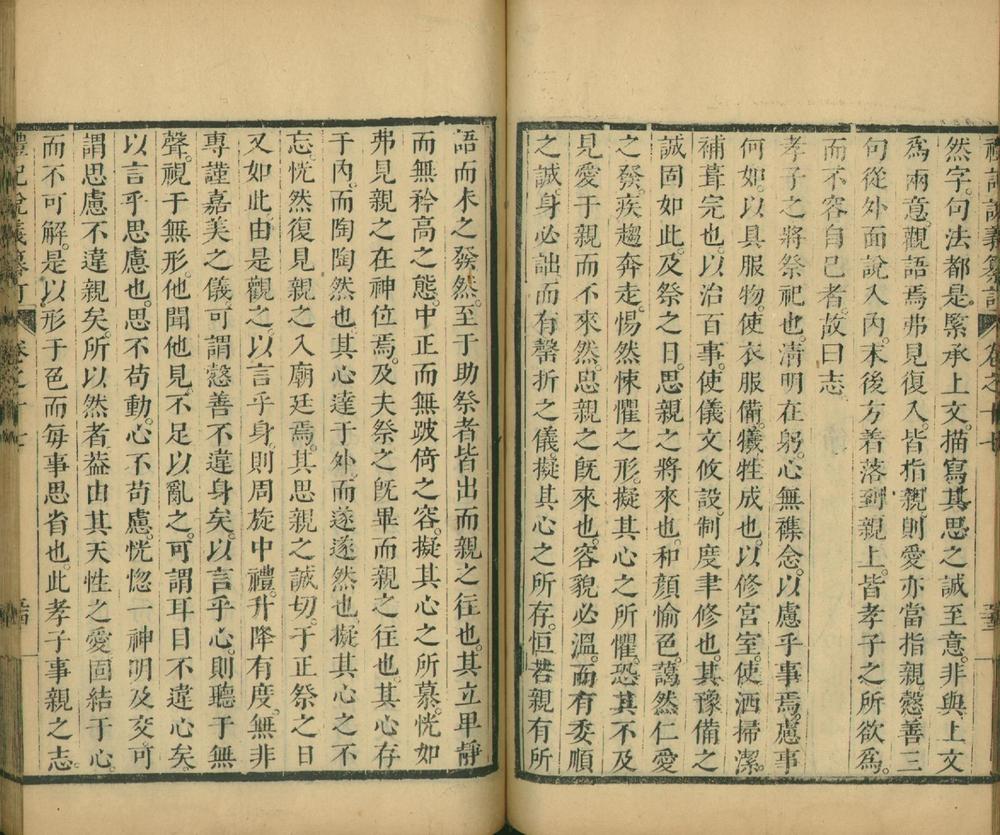 然字。句法都是緊承上文。描寫其思之誠至意。非與上文
爲兩意。觀語焉弗見復入。皆指親。則愛亦當指親。慤善三
句從外面說入內。末後方着落到親上。皆孝子之所欲爲。
而不容自已者。故曰志
孝子之將祭祀也。淸明在躬。心無襍念。以慮乎事焉。慮事
何如。以具服物。使衣服備。犧牲成也。以修宮室。使洒掃潔。
補葺完也。以治百事。使儀文攸設。制度聿修也。其豫備之
誠固如此。及祭之日。思親之將來也。和顏愉色。藹然仁愛
之發。疾趨奔走。惕然悚懼之形。擬其心之所懼。恐其不及
見愛于親而不來然。思親之旣來也。容貌必溫。而有委順
之誠。身必詘。而有罄折之儀。擬其心之所存。恒若親有所
語而未之發然。至于助祭者皆出而親之往也。其立卑靜
而無矜高之態。中正而無跛倚之容。擬其心之所慕。恍如
弗見親之在神位焉。及夫祭之旣畢而親之往也。其心存
于內。而陶陶然也。其心達于外。而遂遂然也。擬其心之不
忘。恍然復見親之入廟廷焉。其思親之誠切。于正祭之日
又如此。由是觀之。以言乎身。則周旋中禮。升降有度。無非
專謹嘉美之儀。可謂慤善不違身矣。以言乎心。則聽于無
聲。視于無形。他聞他見。不足以亂之。可謂耳目不違心矣。
以言乎思慮也。思不苟動。心不苟慮。恍惚一神明及交。可
謂思慮不違親矣。所以然者。葢由其天性之愛。固結于心。
而不可解。是以形于色而每事思省也。此孝子事親之志。
禮記說義纂訂 卷之十七